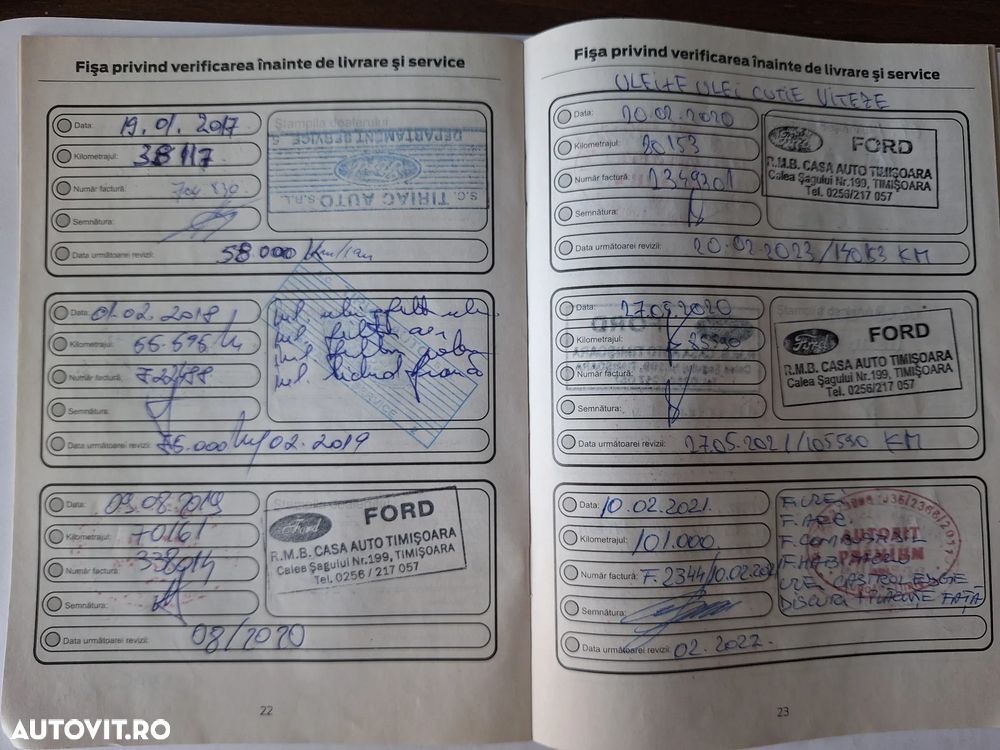 Fișa privind verificarea înainte de livrare și service
Data: 19.01.2017
Kilometrajul: 38117
Număr factură:
Semnătura:
Data următoarei revizii: 58.000 km/1an
Ștampila dealerului
DEPARTAMENT SERVICE
Ford
S.C. TIRIAC AUTO S.R.L.
Data: 01.02.2018
Kilometrajul: 55.595
Număr factură:
Semnătura:
Data următoarei revizii: 75.000 02.2019
Data: 09.08.2019
Kilometrajul: 70161
Număr factură: 338914
Semnătura:
Data următoarei revizii: 08/2020
Ford FORD
R.M.B. CASA AUTO TIMIȘOARA
Calea Șagului Nr.199, TIMIȘOARA
Tel. 0256 / 217 057
22
Fișa privind verificarea înainte de livrare și service
ULEI CUTIE VITEZE
Data: 20.02.2020
Kilometrajul:
Număr factură: 2349301
Semnătura:
Data următoarei revizii: 20.02.2023 KM
Ford FORD
R.M.B. CASA AUTO TIMIȘOARA
Calea Șagului Nr.199, TIMIȘOARA
Tel. 0256/217 057
Data: 27.05.2020
Kilometrajul: 85590
Număr factură:
Semnătura:
Data următoarei revizii: 27.05.2021/105590 KM
Ford FORD
R.M.B. CASA AUTO TIMIȘOARA
Calea Șagului Nr.199, TIMIȘOARA
Tel. 0256/217 057
Data: 10.02.2021.
Kilometrajul: 101.000
Număr factură: F.2344/10.02.2021
Semnătura:
Data următoarei revizii: 02.2022.
F. ULEI
F. AER
F. COMBUSTIBIL
F. HABITACLU
ULEI CASTROL EDGE
DISCURI + PLĂCUȚE FAȚĂ
AUTORIT
PREMIUM
23
AUTOVIT.RO